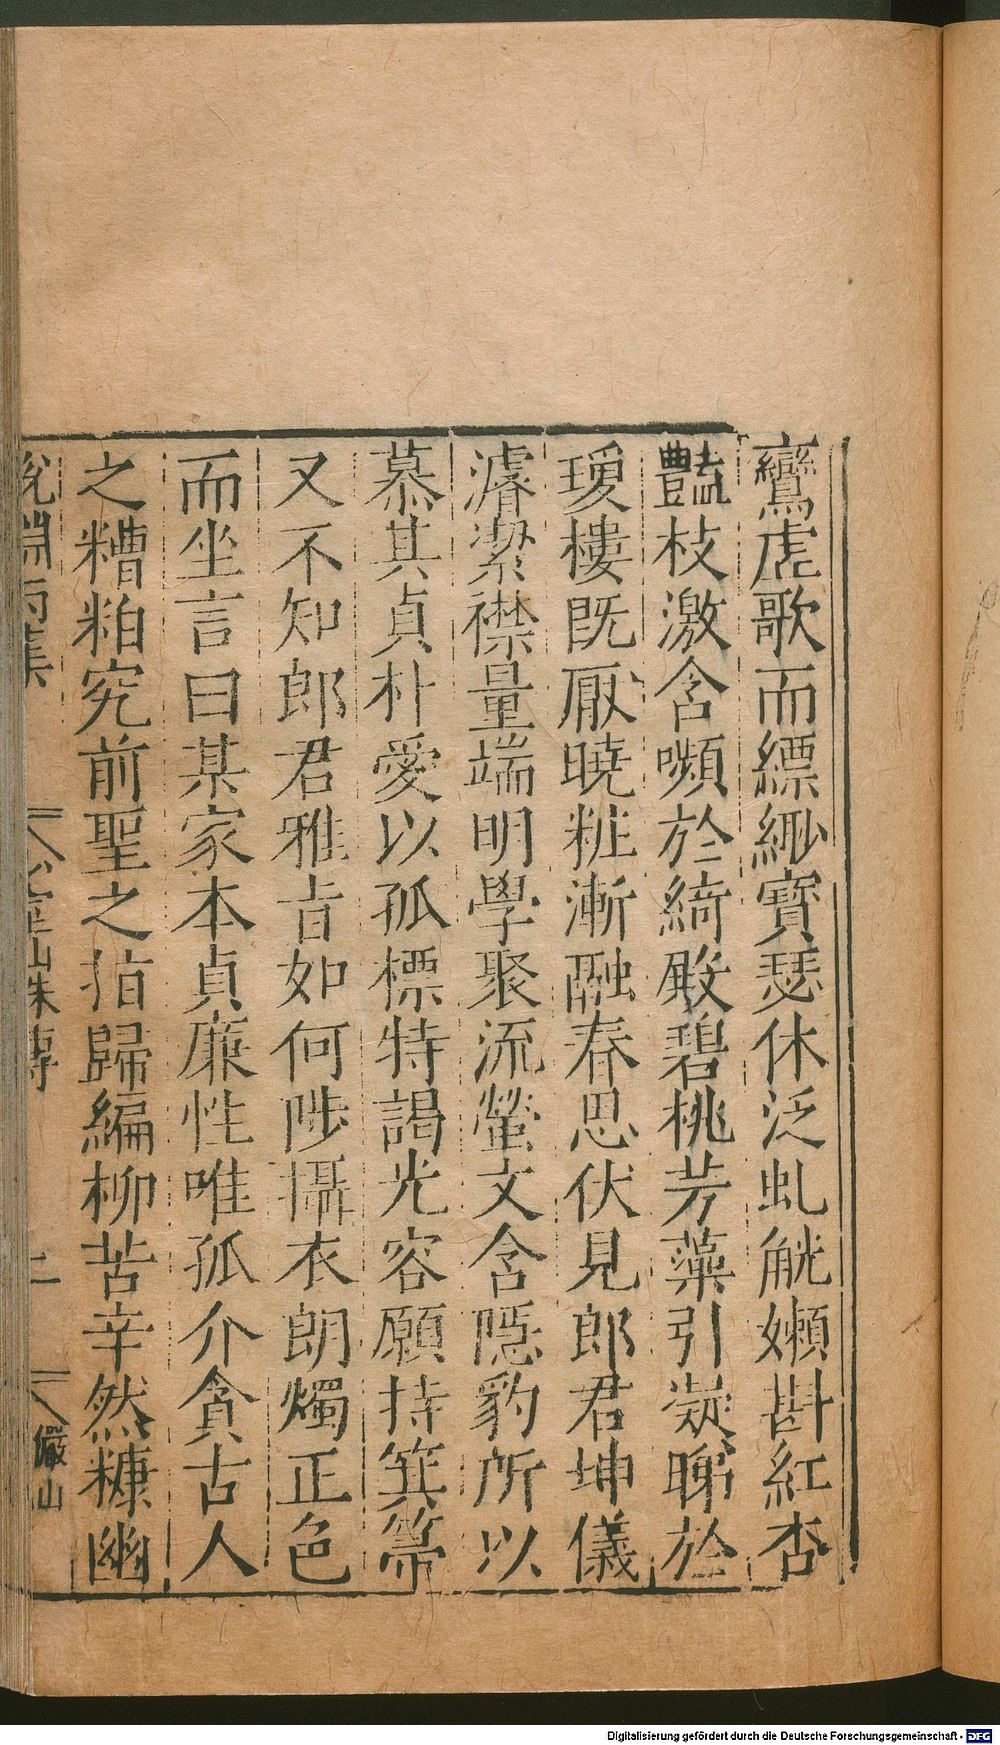 鸞虎歌而縹緲寶瑟休泛虬觥嬾斟紅杏
豔枝激含嚬於綺殿碧桃芳蘂引凝睇於
瑷樓既厭曉粧漸融春思伏見郎君坤儀
濬潔襟量端明學聚流螢文含隱豹所以
慕其貞朴愛以孤標特謁光容願持箕箒
又不知郎君雅旨如何陟攝衣朗燭正色
而坐言曰某家本貞廉性唯孤介貪古人
之糟粕究前聖之指歸編柳苦辛然糠幽
說淵丙集
少室仙姝傳
二
儼山
Digitalisierung gefördert durch die Deutsche Forschungsgemeinschaft - DFG